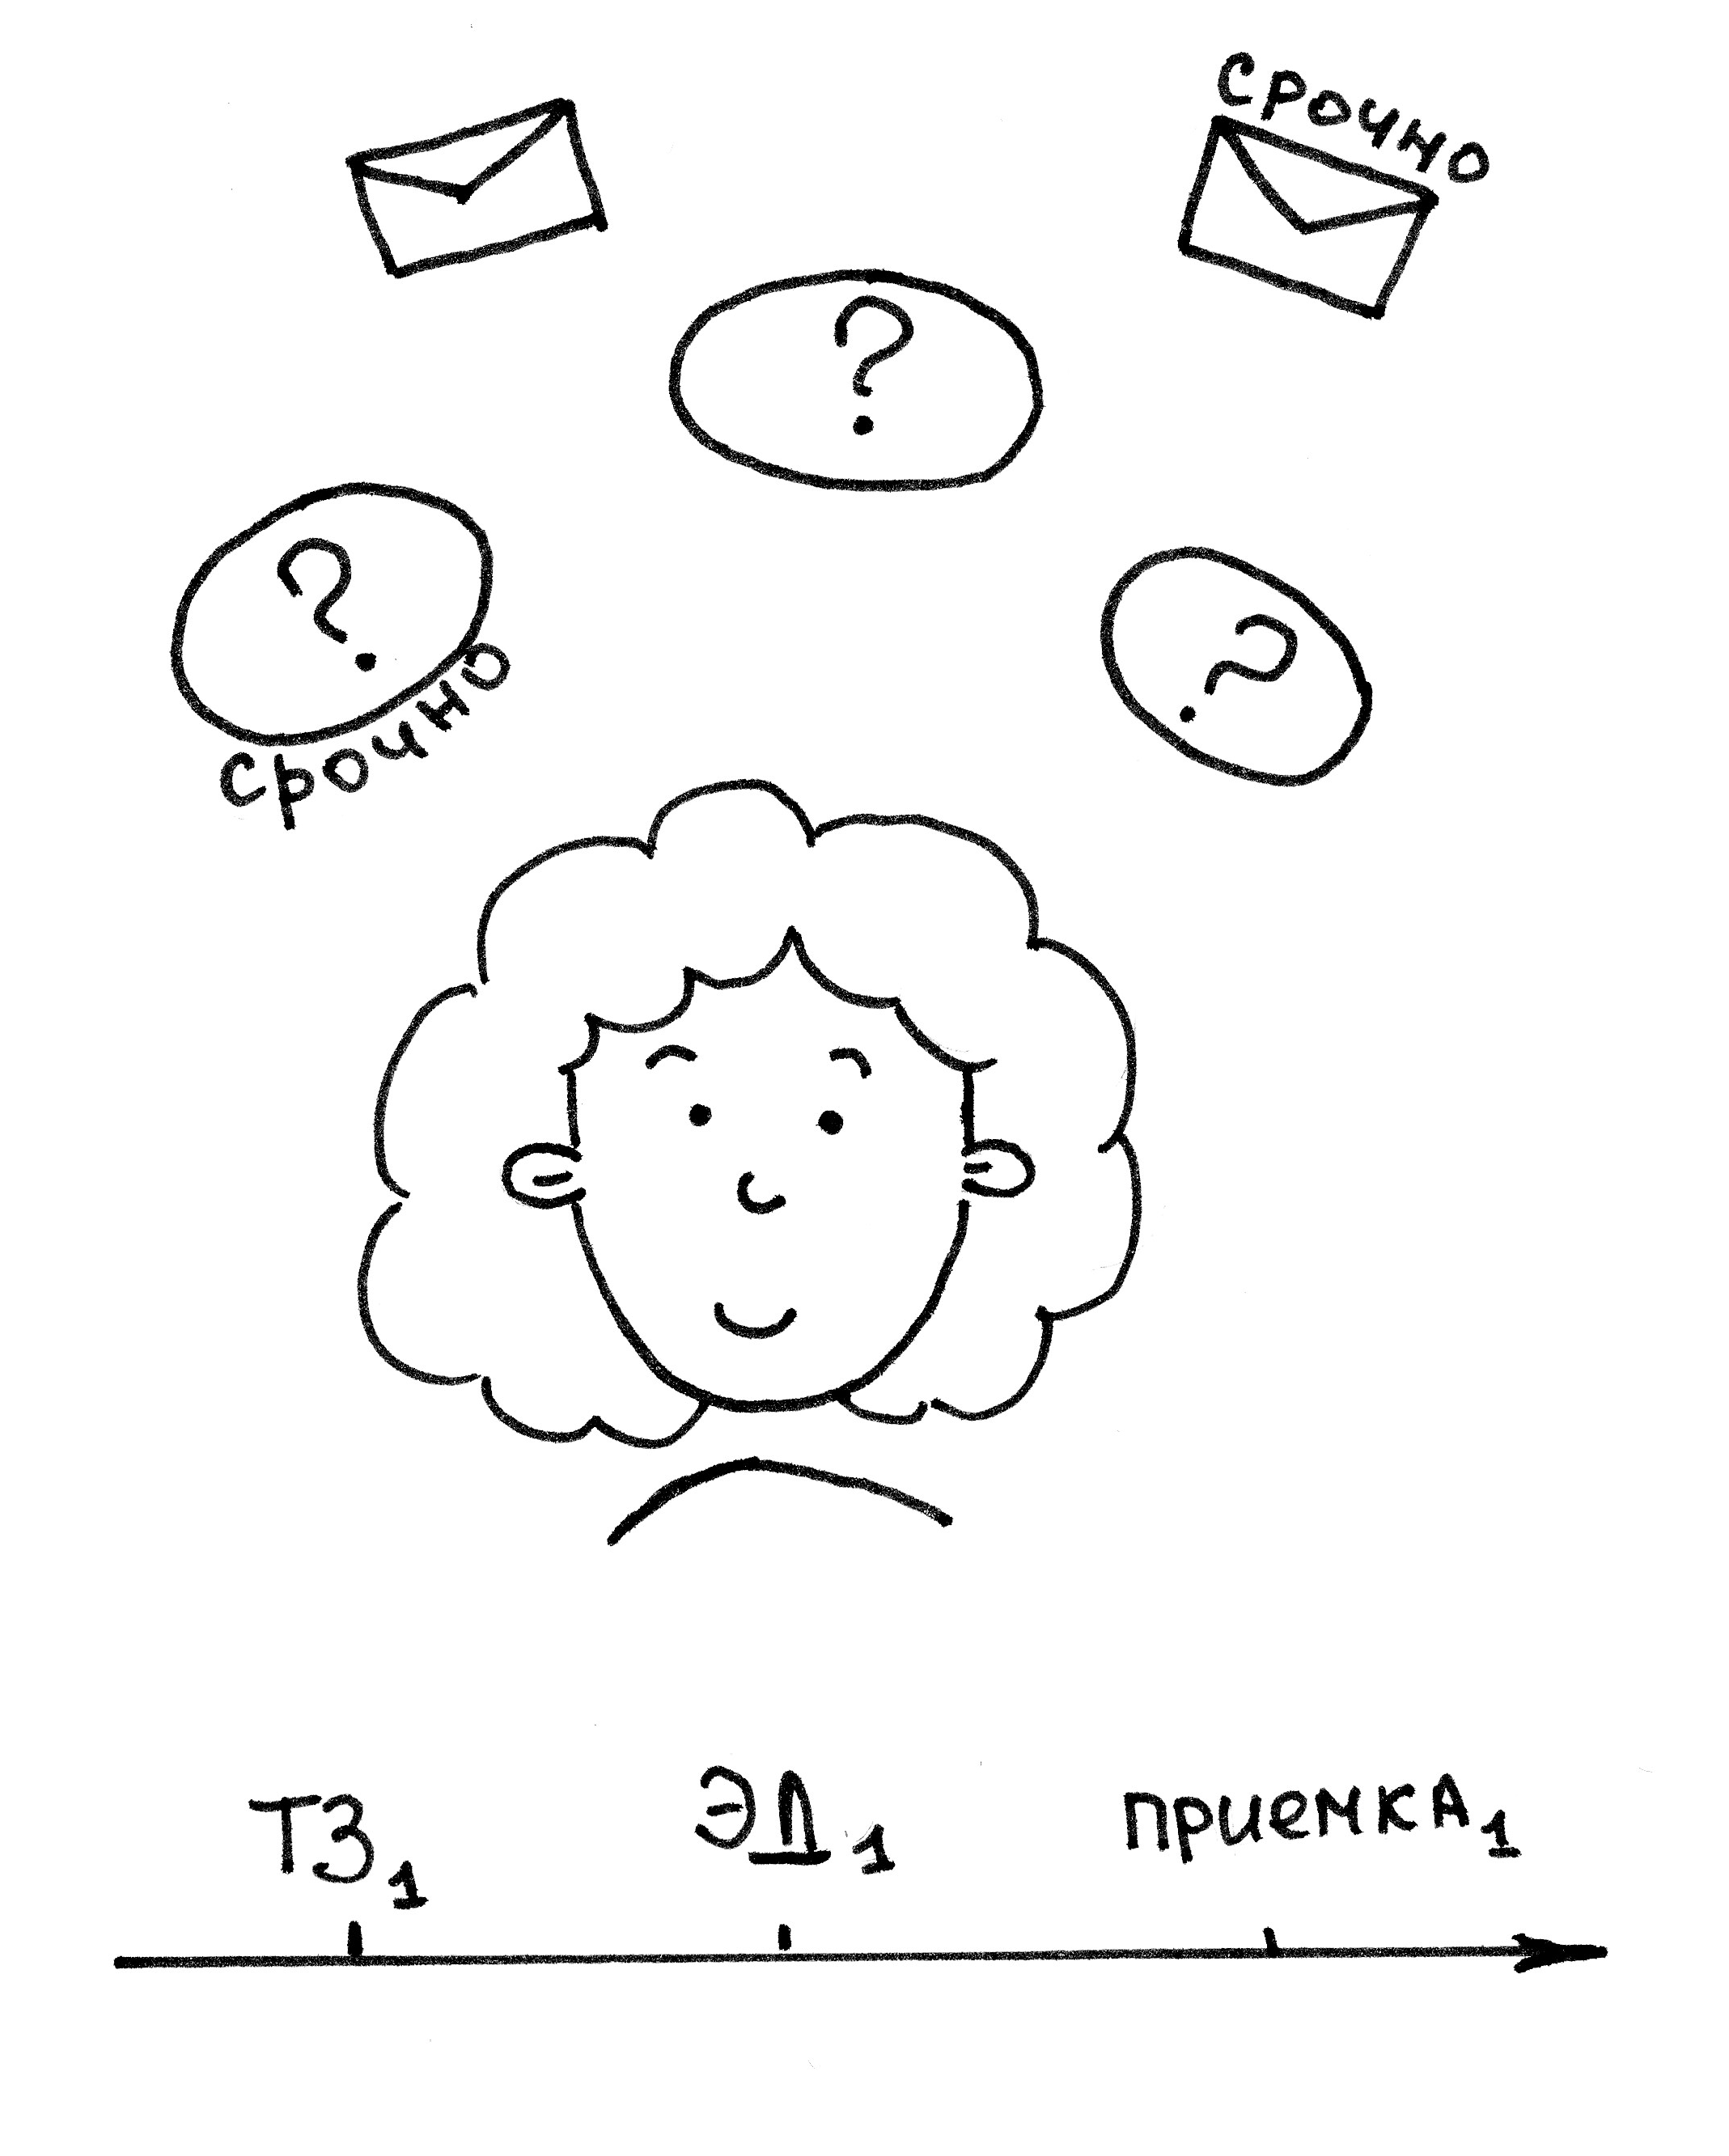 срочно
?
?
?
срочно
ТЗ₁
ЭД₁
ПРИЕМКА₁